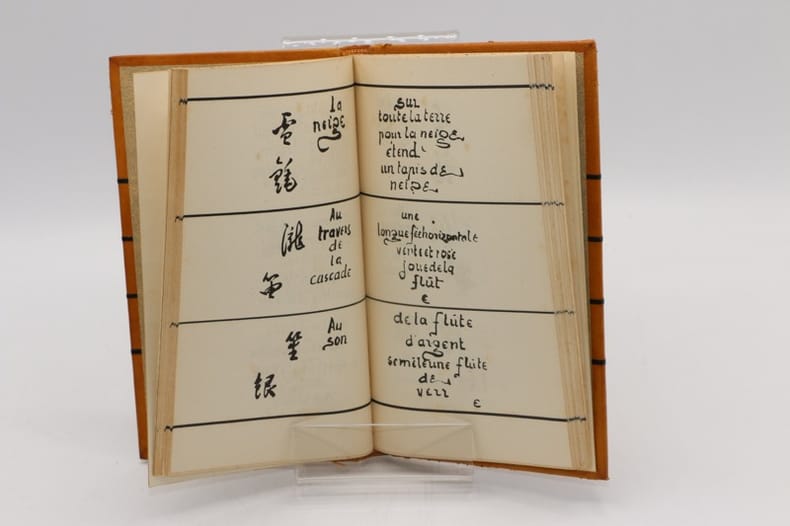 雪
la
neige
sur
toute la terre
pour la neige
étend
un tapis de
neige
瀧
笛
Au
travers
de
la
cascade
une
longue fée horizontale
verte et rose
joue de la
flût
e
笙
銀
Au
son
de la flûte
d'argent
se mêle une flûte
de
verr
e